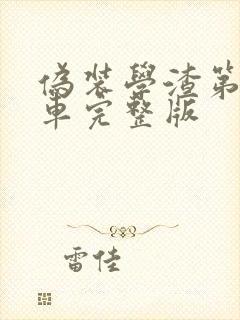 偽装學渣第
車完整版
雷佳